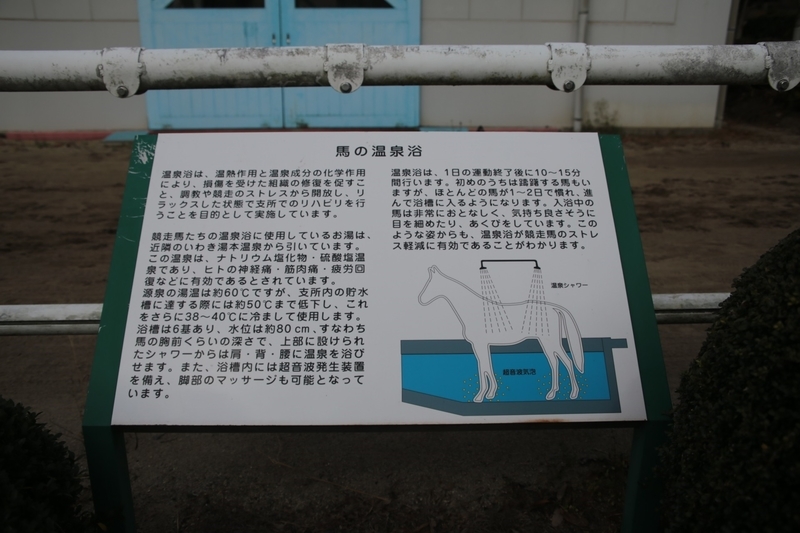 馬の温泉浴
温泉浴は、温熱作用と温泉成分の化学作用
により、損傷を受けた組織の修復を促すこ
と、調教や競走のストレスから開放し、リ
ラックスした状態で支所でのリハビリを行
うことを目的として実施しています。
競走馬たちの温泉浴に使用しているお湯は、
近隣のいわき湯本温泉から引いています。
この温泉は、ナトリウム塩化物・硫酸塩温
泉であり、ヒトの神経痛・筋肉痛・疲労回
復などに有効であるとされています。
源泉の湯温は約60℃ですが、支所内の貯水
槽に達する際には約50℃まで低下し、これ
をさらに38～40℃に冷まして使用します。
浴槽は6基あり、水位は約80cm、すなわち
馬の胸前くらいの深さで、上部に設けられ
たシャワーからは肩・背・腰に温泉を浴び
せます。また、浴槽内には超音波発生装置
を備え、脚部のマッサージも可能となって
います。
温泉浴は、1日の運動終了後に10～15分
間行います。初めのうちは躊躇する馬もい
ますが、ほとんどの馬が1～2日で慣れ、進
んで浴槽に入るようになります。入浴中の
馬は非常におとなしく、気持ち良さそうに
目を細めたり、あくびをしています。この
ような姿からも、温泉浴が競走馬のストレ
ス軽減に有効であることがわかります。
温泉シャワー
超音波気泡